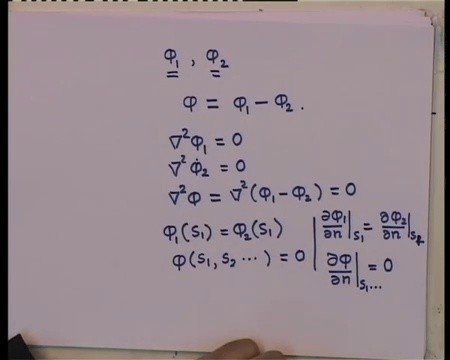 φ₁ , φ₂
φ = φ₁ − φ₂ .
∇²φ₁ = 0
∇²φ₂ = 0
∇²φ = ∇²(φ₁ − φ₂) = 0
φ₁(S₁) = φ₂(S₁) | ∂φ₁/∂n|S₁ = ∂φ₂/∂n|S₂
φ(S₁, S₂ ⋯) = 0 | ∂φ/∂n|S₁... = 0